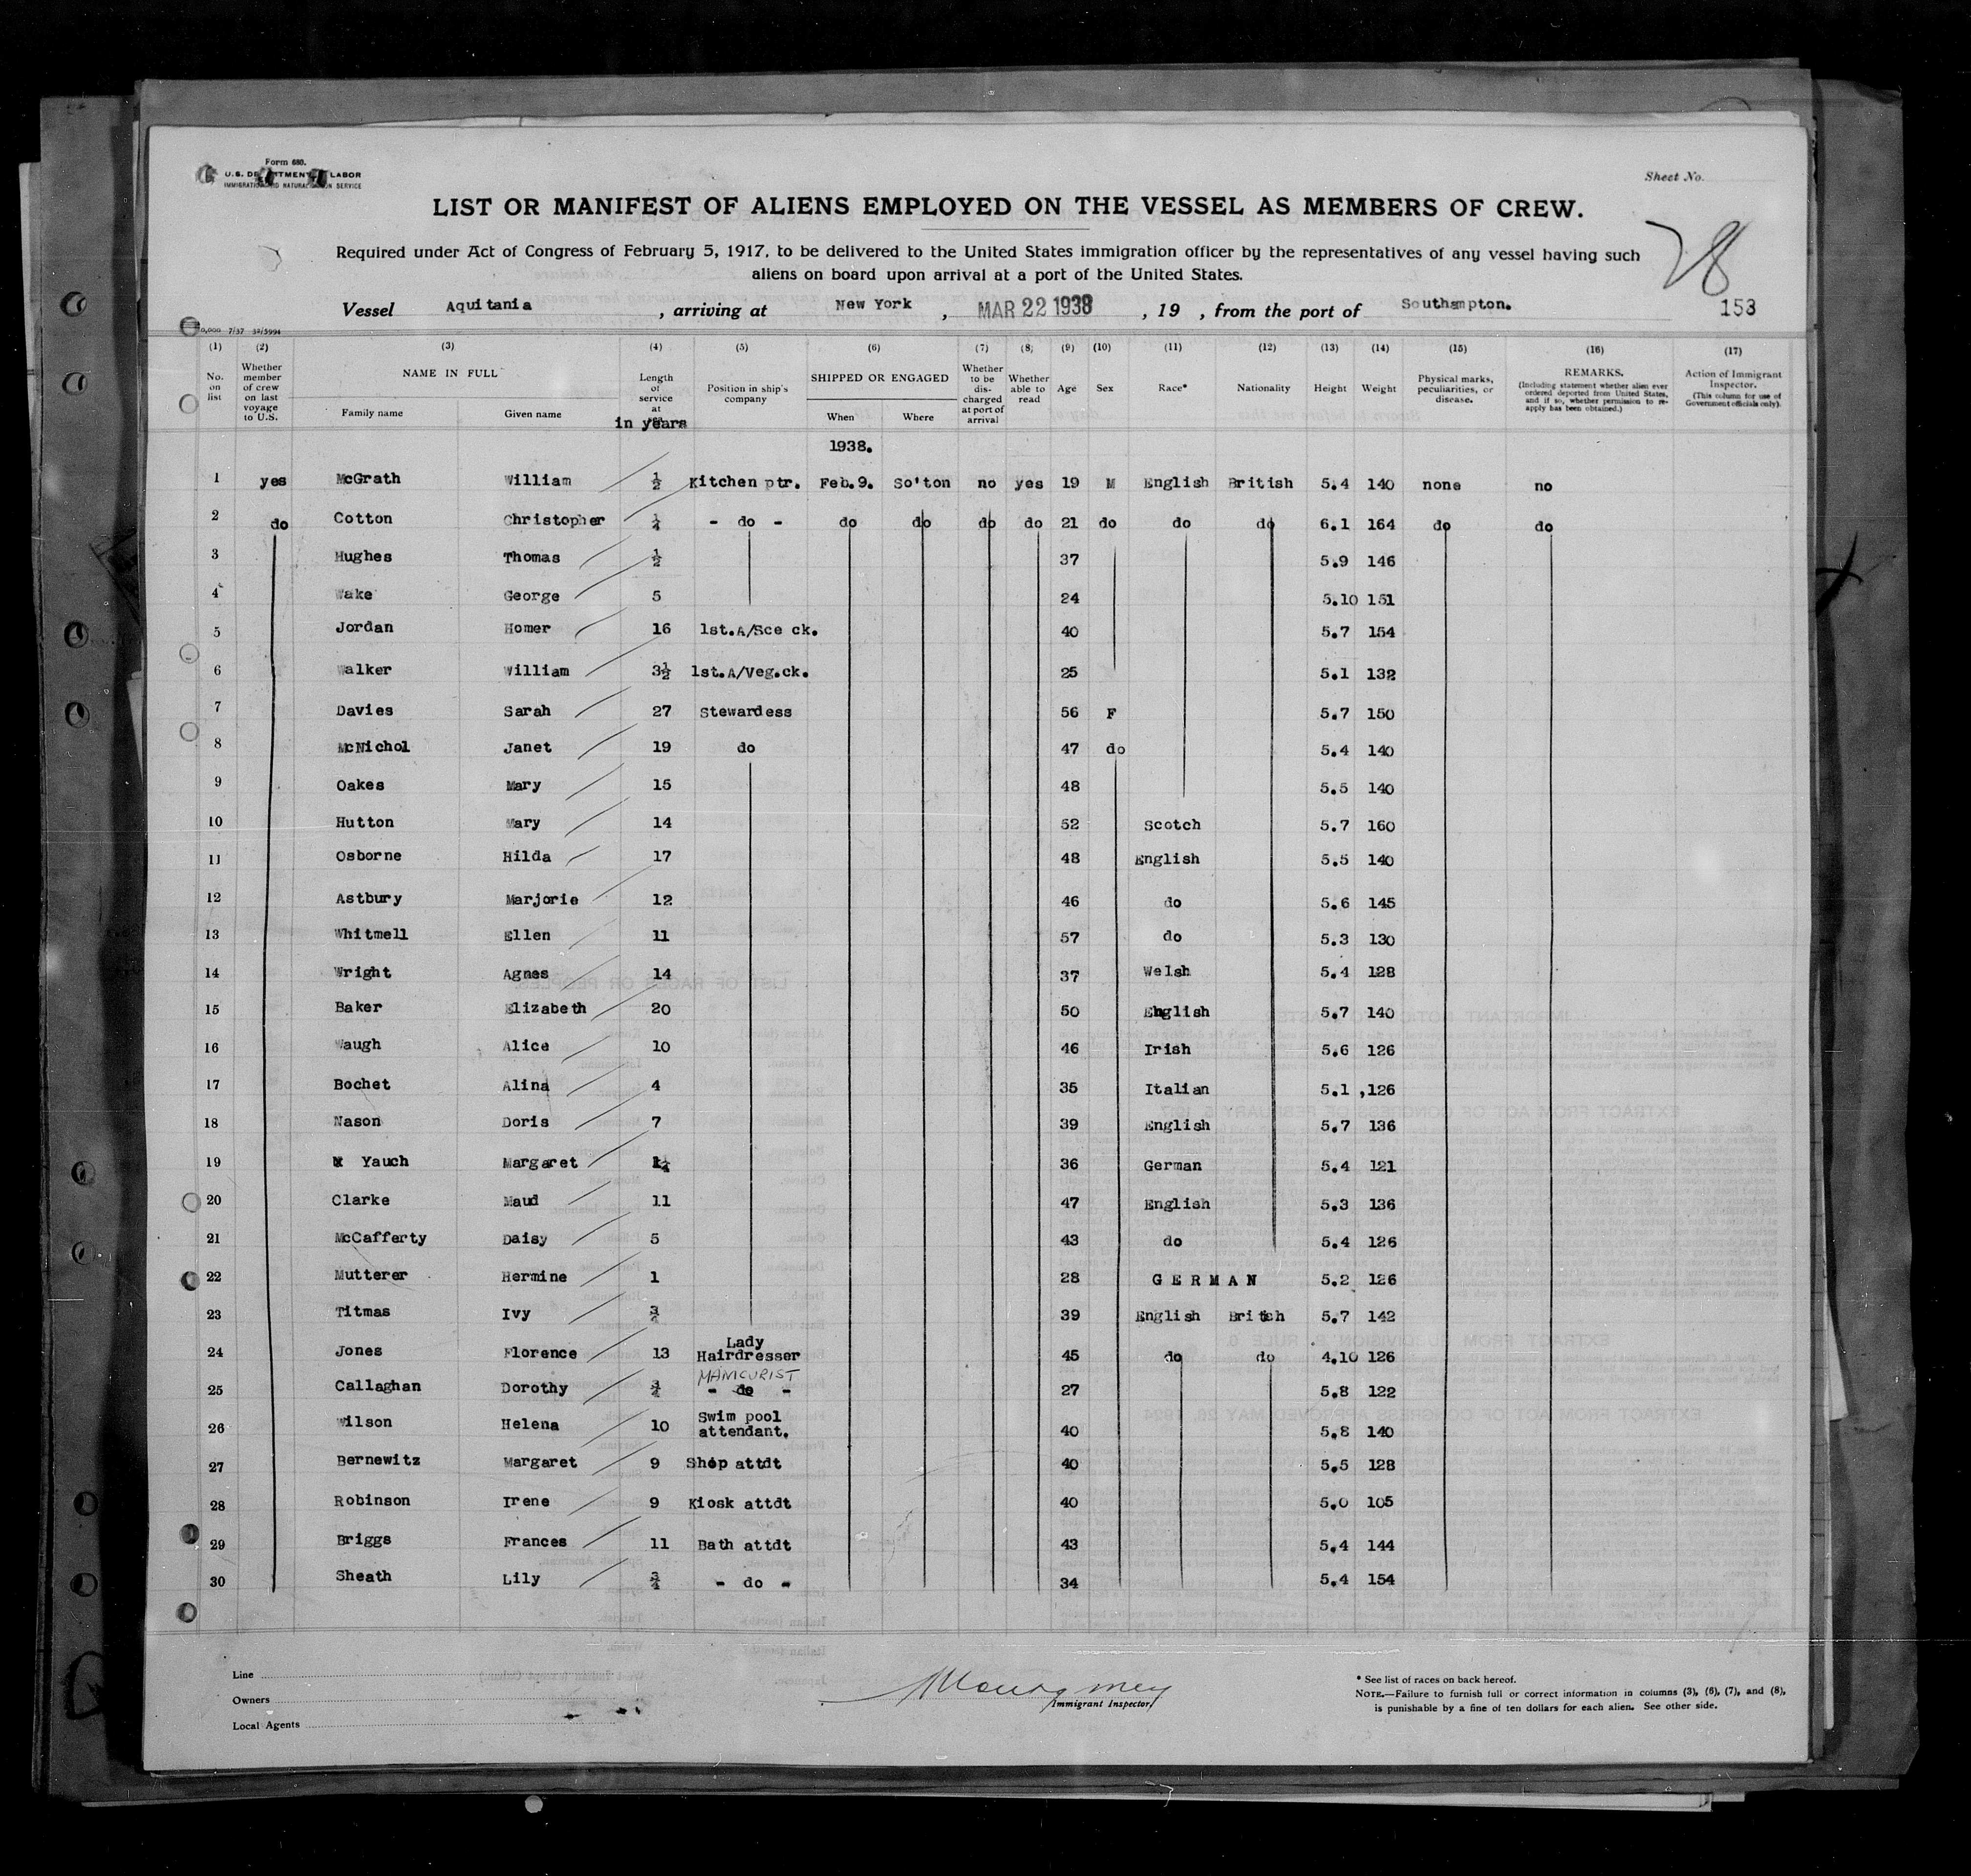 Form 680.
U.S. DEPARTMENT OF LABOR
IMMIGRATION AND NATURALIZATION SERVICE
Sheet No.
LIST OR MANIFEST OF ALIENS EMPLOYED ON THE VESSEL AS MEMBERS OF CREW.
28
Required under Act of Congress of February 5, 1917, to be delivered to the United States immigration officer by the representatives of any vessel having such
aliens on board upon arrival at a port of the United States.
Vessel Aquitania, arriving at New York, MAR 22 1938, 19 , from the port of Southampton. 153
(1) (2) (3) (4) (5) (6) (7) (8) (9) (10) (11) (12) (13) (14) (15) (16) (17)
No. on list Whether member of crew on last voyage to U.S. NAME IN FULL Family name Given name Length of service at in years Position in ship's company SHIPPED OR ENGAGED When Where Whether to be discharged at port of arrival Whether able to read Age Sex Race* Nationality Height Weight Physical marks, peculiarities, or disease. REMARKS. (Including statement whether alien ever ordered deported from United States, and if so, whether permission to re-apply has been obtained.) Action of Immigrant Inspector. (This column for use of Government officials only).
1938.
1 yes McGrath William ½ Kitchen ptr. Feb.9. So'ton no yes 19 M English British 5.4 140 none no
2 do Cotton Christopher ¼ - do - do do do do 21 do do do 6.1 164 do do
3 Hughes Thomas ½ 37 5.9 146
4 Wake George 5 24 5.10 151
5 Jordan Homer 16 1st.A/Sce ck. 40 5.7 154
6 Walker William 3½ 1st.A/Veg.ck. 25 5.1 132
7 Davies Sarah 27 Stewardess 56 F 5.7 150
8 McNichol Janet 19 do 47 do 5.4 140
9 Oakes Mary 15 48 5.5 140
10 Hutton Mary 14 52 Scotch 5.7 160
11 Osborne Hilda 17 48 English 5.5 140
12 Astbury Marjorie 12 46 do 5.6 145
13 Whitmell Ellen 11 57 do 5.3 130
14 Wright Agnes 14 37 Welsh 5.4 128
15 Baker Elizabeth 20 50 English 5.7 140
16 Waugh Alice 10 46 Irish 5.6 126
17 Bochet Alina 4 35 Italian 5.1 ,126
18 Nason Doris 7 39 English 5.7 136
19 Yauch Margaret 1¼ 36 German 5.4 121
20 Clarke Maud 11 47 English 5.3 136
21 McCafferty Daisy 5 43 do 5.4 126
22 Mutterer Hermine 1 28 GERMAN 5.2 126
23 Titmas Ivy ¾ 39 English Britsh 5.7 142
24 Jones Florence 13 Lady Hairdresser 45 do do 4.10 126
25 Callaghan Dorothy ¾ MANICURIST - do - 27 5.8 122
26 Wilson Helena 10 Swim pool attendant. 40 5.8 140
27 Bernewitz Margaret 9 Shop attdt 40 5.5 128
28 Robinson Irene 9 Kiosk attdt 40 5.0 105
29 Briggs Frances 11 Bath attdt 43 5.4 144
30 Sheath Lily ¾ - do - 34 5.4 154
Line
Owners
Local Agents
Immigrant Inspector
* See list of races on back hereof.
NOTE.—Failure to furnish full or correct information in columns (3), (6), (7), and (8),
is punishable by a fine of ten dollars for each alien. See other side.